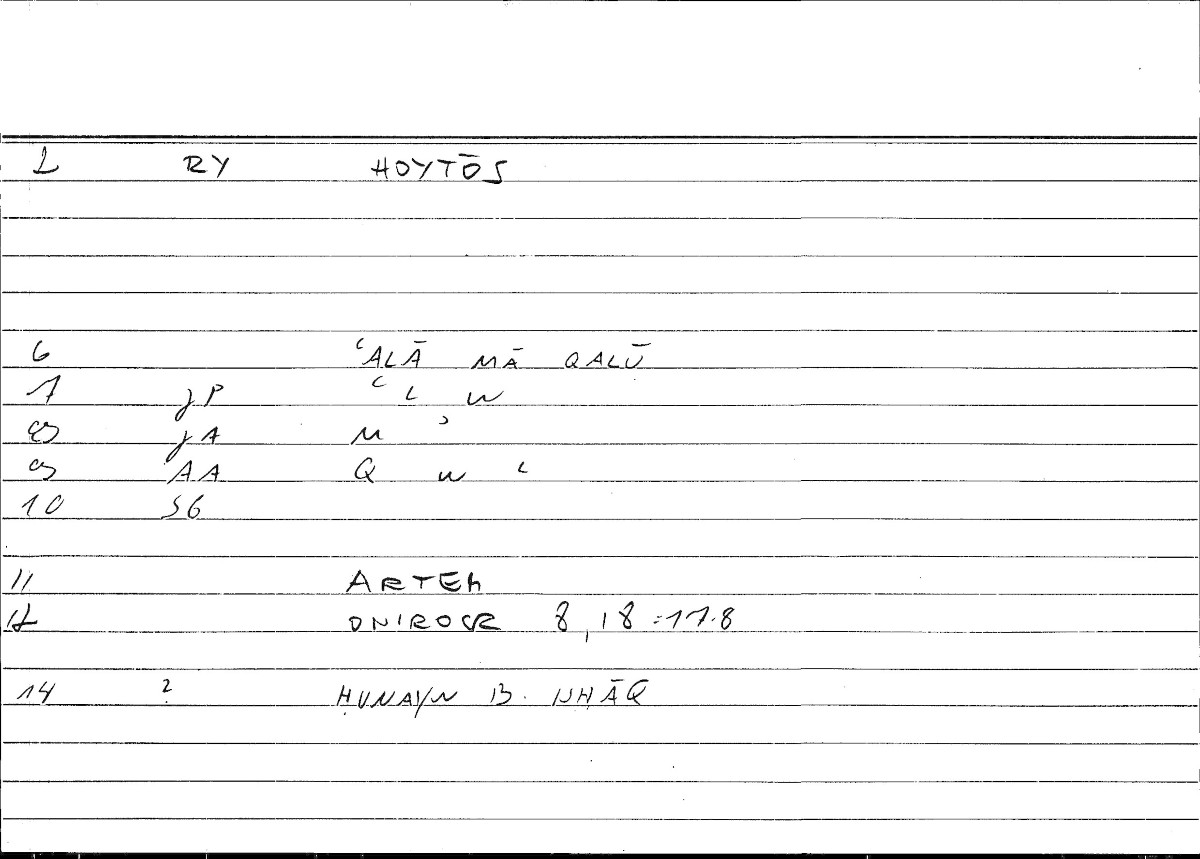 2 RY HOYTŌS
6 ʿALĀ MĀ QALŪ
7 jP ʿ L W
8 jA M ʾ
9 AA Q W L
10 SG
11 ARTEM
12 ONIROCR 8,18 = 17.8
14 ? ḤUNAYN B. ISḤĀQ